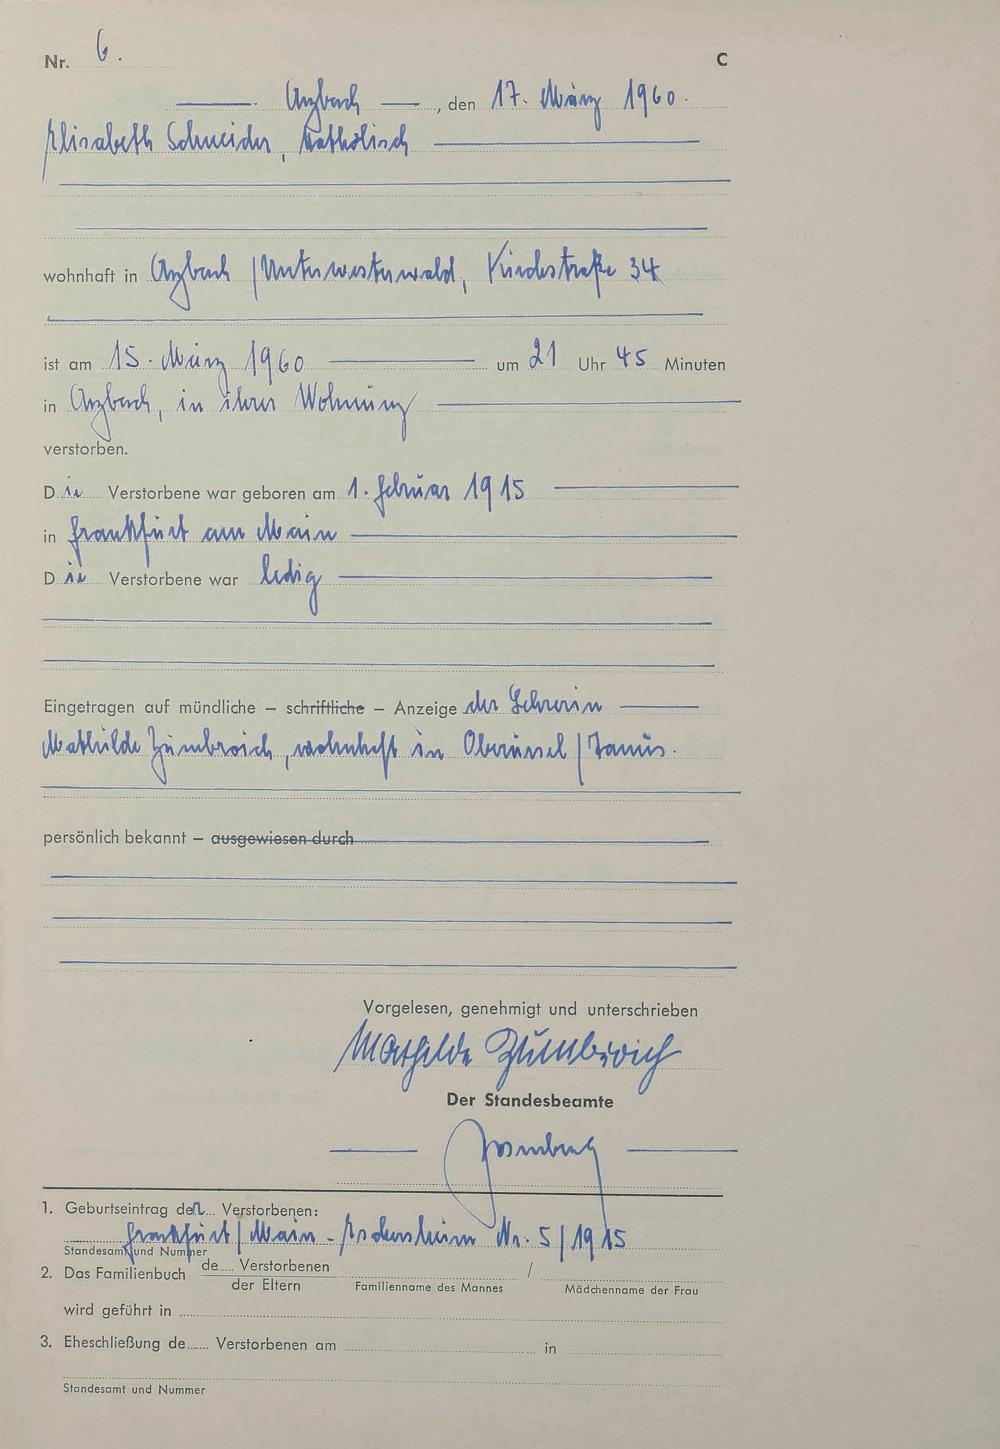 Nr. 6.
C
Arzbach, den 17. März 1960.
Elisabeth Schneider, katholisch
wohnhaft in Arzbach/Unterwesterwald, Kirchstraße 34
ist am 15. März 1960 um 21 Uhr 45 Minuten
in Arzbach, in ihrer Wohnung
verstorben.
Die Verstorbene war geboren am 1. Februar 1915
in Frankfurt am Main
Die Verstorbene war ledig
Eingetragen auf mündliche – schriftliche – Anzeige der Lehrerin
Mathilde Zumbroich, wohnhaft in Oberursel/Taunus.
persönlich bekannt – ausgewiesen durch
Vorgelesen, genehmigt und unterschrieben
Mathilde Zumbroich
Der Standesbeamte
1. Geburtseintrag der Verstorbenen:
Frankfurt/Main - Nr. 5/1915
Standesamt und Nummer
2. Das Familienbuch de.... Verstorbenen /
der Eltern Familienname des Mannes Mädchenname der Frau
wird geführt in
3. Eheschließung de...... Verstorbenen am in
Standesamt und Nummer